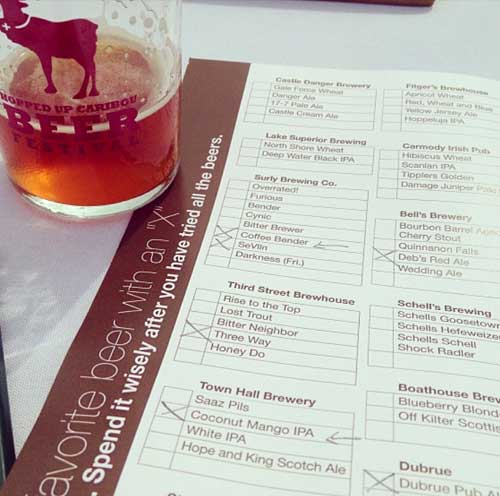 HOPPED UP CARIBOU
BEER
FESTIVAL
favorite beer with an "X"
- Spend it wisely after you have tried all the beers.
Castle Danger Brewery
Gale Force Wheat
Danger Ale
17-7 Pale Ale
Castle Cream Ale
Lake Superior Brewing
North Shore Wheat
Deep Water Black IPA
Surly Brewing Co.
Overrated!
Furious
Bender
Cynic
Bitter Brewer
Coffee Bender
SeVIin
Darkness (Fri.)
Third Street Brewhouse
Rise to the Top
Lost Trout
Bitter Neighbor
Three Way
Honey Do
Town Hall Brewery
Saaz Pils
Coconut Mango IPA
White IPA
Hope and King Scotch Ale
Fitger's Brewhouse
Apricot Wheat
Red, Wheat and Blue
Yellow Jersey Ale
Hoppeluja IPA
Carmody Irish Pub
Hibiscus Wheat
Scanlan IPA
Tipplers Golden
Damage Juniper Pale
Bell's Brewery
Bourbon Barrel
Cherry Stout
Quinnanon Falls
Deb's Red Ale
Wedding Ale
Schell's Brewing
Schells Goosetown
Schells Hefeweizen
Schells Schell
Shock Radler
Boathouse Brew
Blueberry Blond
Off Kilter Scottis
Dubrue
Dubrue Pub A